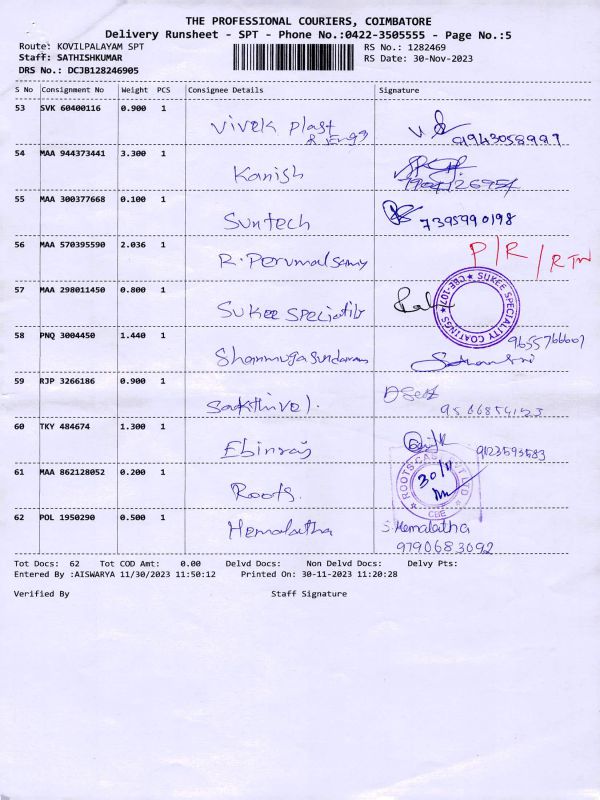 THE PROFESSIONAL COURIERS, COIMBATORE
Delivery Runsheet - SPT - Phone No.:0422-3505555 - Page No.:5
Route: KOVILPALAYAM SPT RS No.: 1282469
Staff: SATHISHKUMAR RS Date: 30-Nov-2023
DRS No.: DCJB128246905
S No Consignment No Weight PCS Consignee Details Signature
53 SVK 60400116 0.900 1
Vivek Plast & Engg
54 MAA 944373441 3.300 1
Kanish
55 MAA 300377668 0.100 1
Suntech 7395990198
56 MAA 570395590 2.036 1 P/R/RTN
R. Perumal Samy
57 MAA 298011450 0.800 1
SUKEE SPECIALITY COATINGS ★ CBE-107 ★
Sukee Speciality
58 PNQ 3004450 1.440 1
Shanmuga Sundaram
59 RJP 3266186 0.900 1
Sakthivel.
60 TKY 484674 1.300 1
Ebinraj 9123593583
61 MAA 862128052 0.200 1 30/11
Roots. CBE
62 POL 1950290 0.500 1
Hemalatha S. Hemalatha
9790683092
Tot Docs: 62 Tot COD Amt: 0.00 Delvd Docs: Non Delvd Docs: Delvy Pts:
Entered By :AISWARYA 11/30/2023 11:50:12 Printed On: 30-11-2023 11:20:28
Verified By Staff Signature